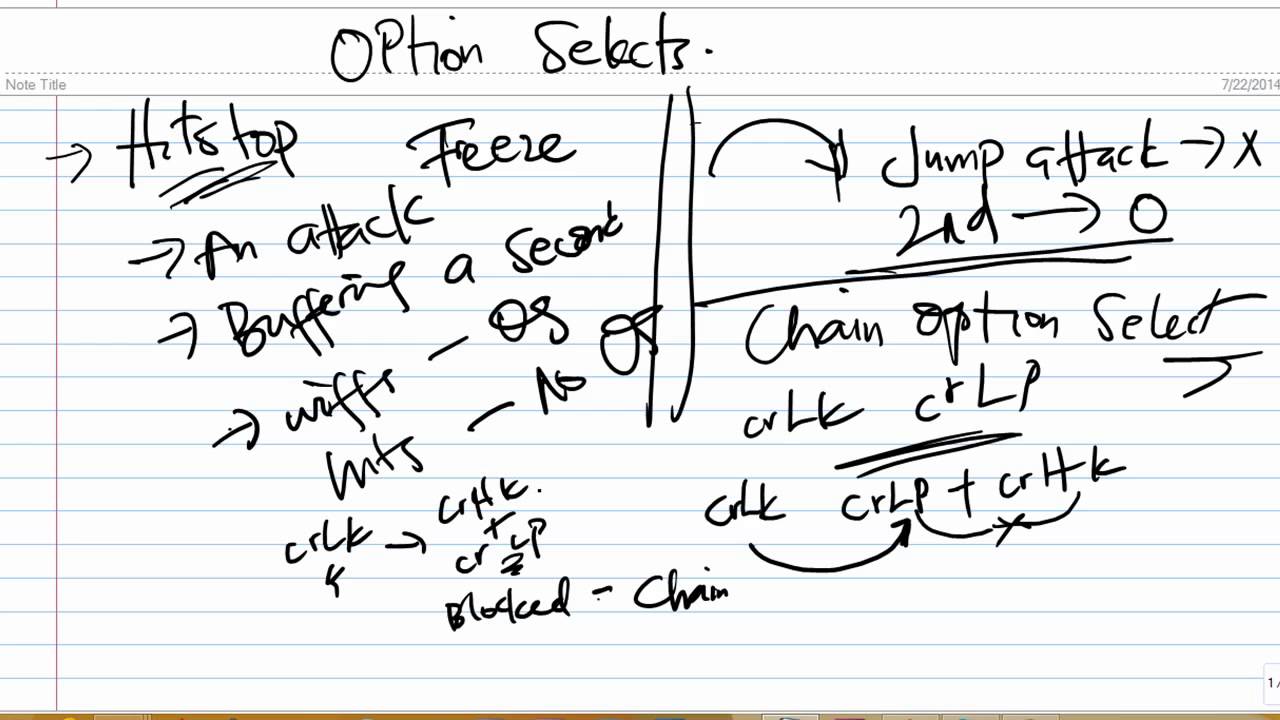 Option Selects.
Note Title
7/22/2014
→ Hitstop Freeze
→ An attack
→ Buffering a second
→ wiffs – OS OS
hits – No
crLk → crHk.
+
crLP
Blocked – Chain
Jump attack → X
2nd → O
Chain option Select
crLk crLP
crLk crLP + crHk
1/